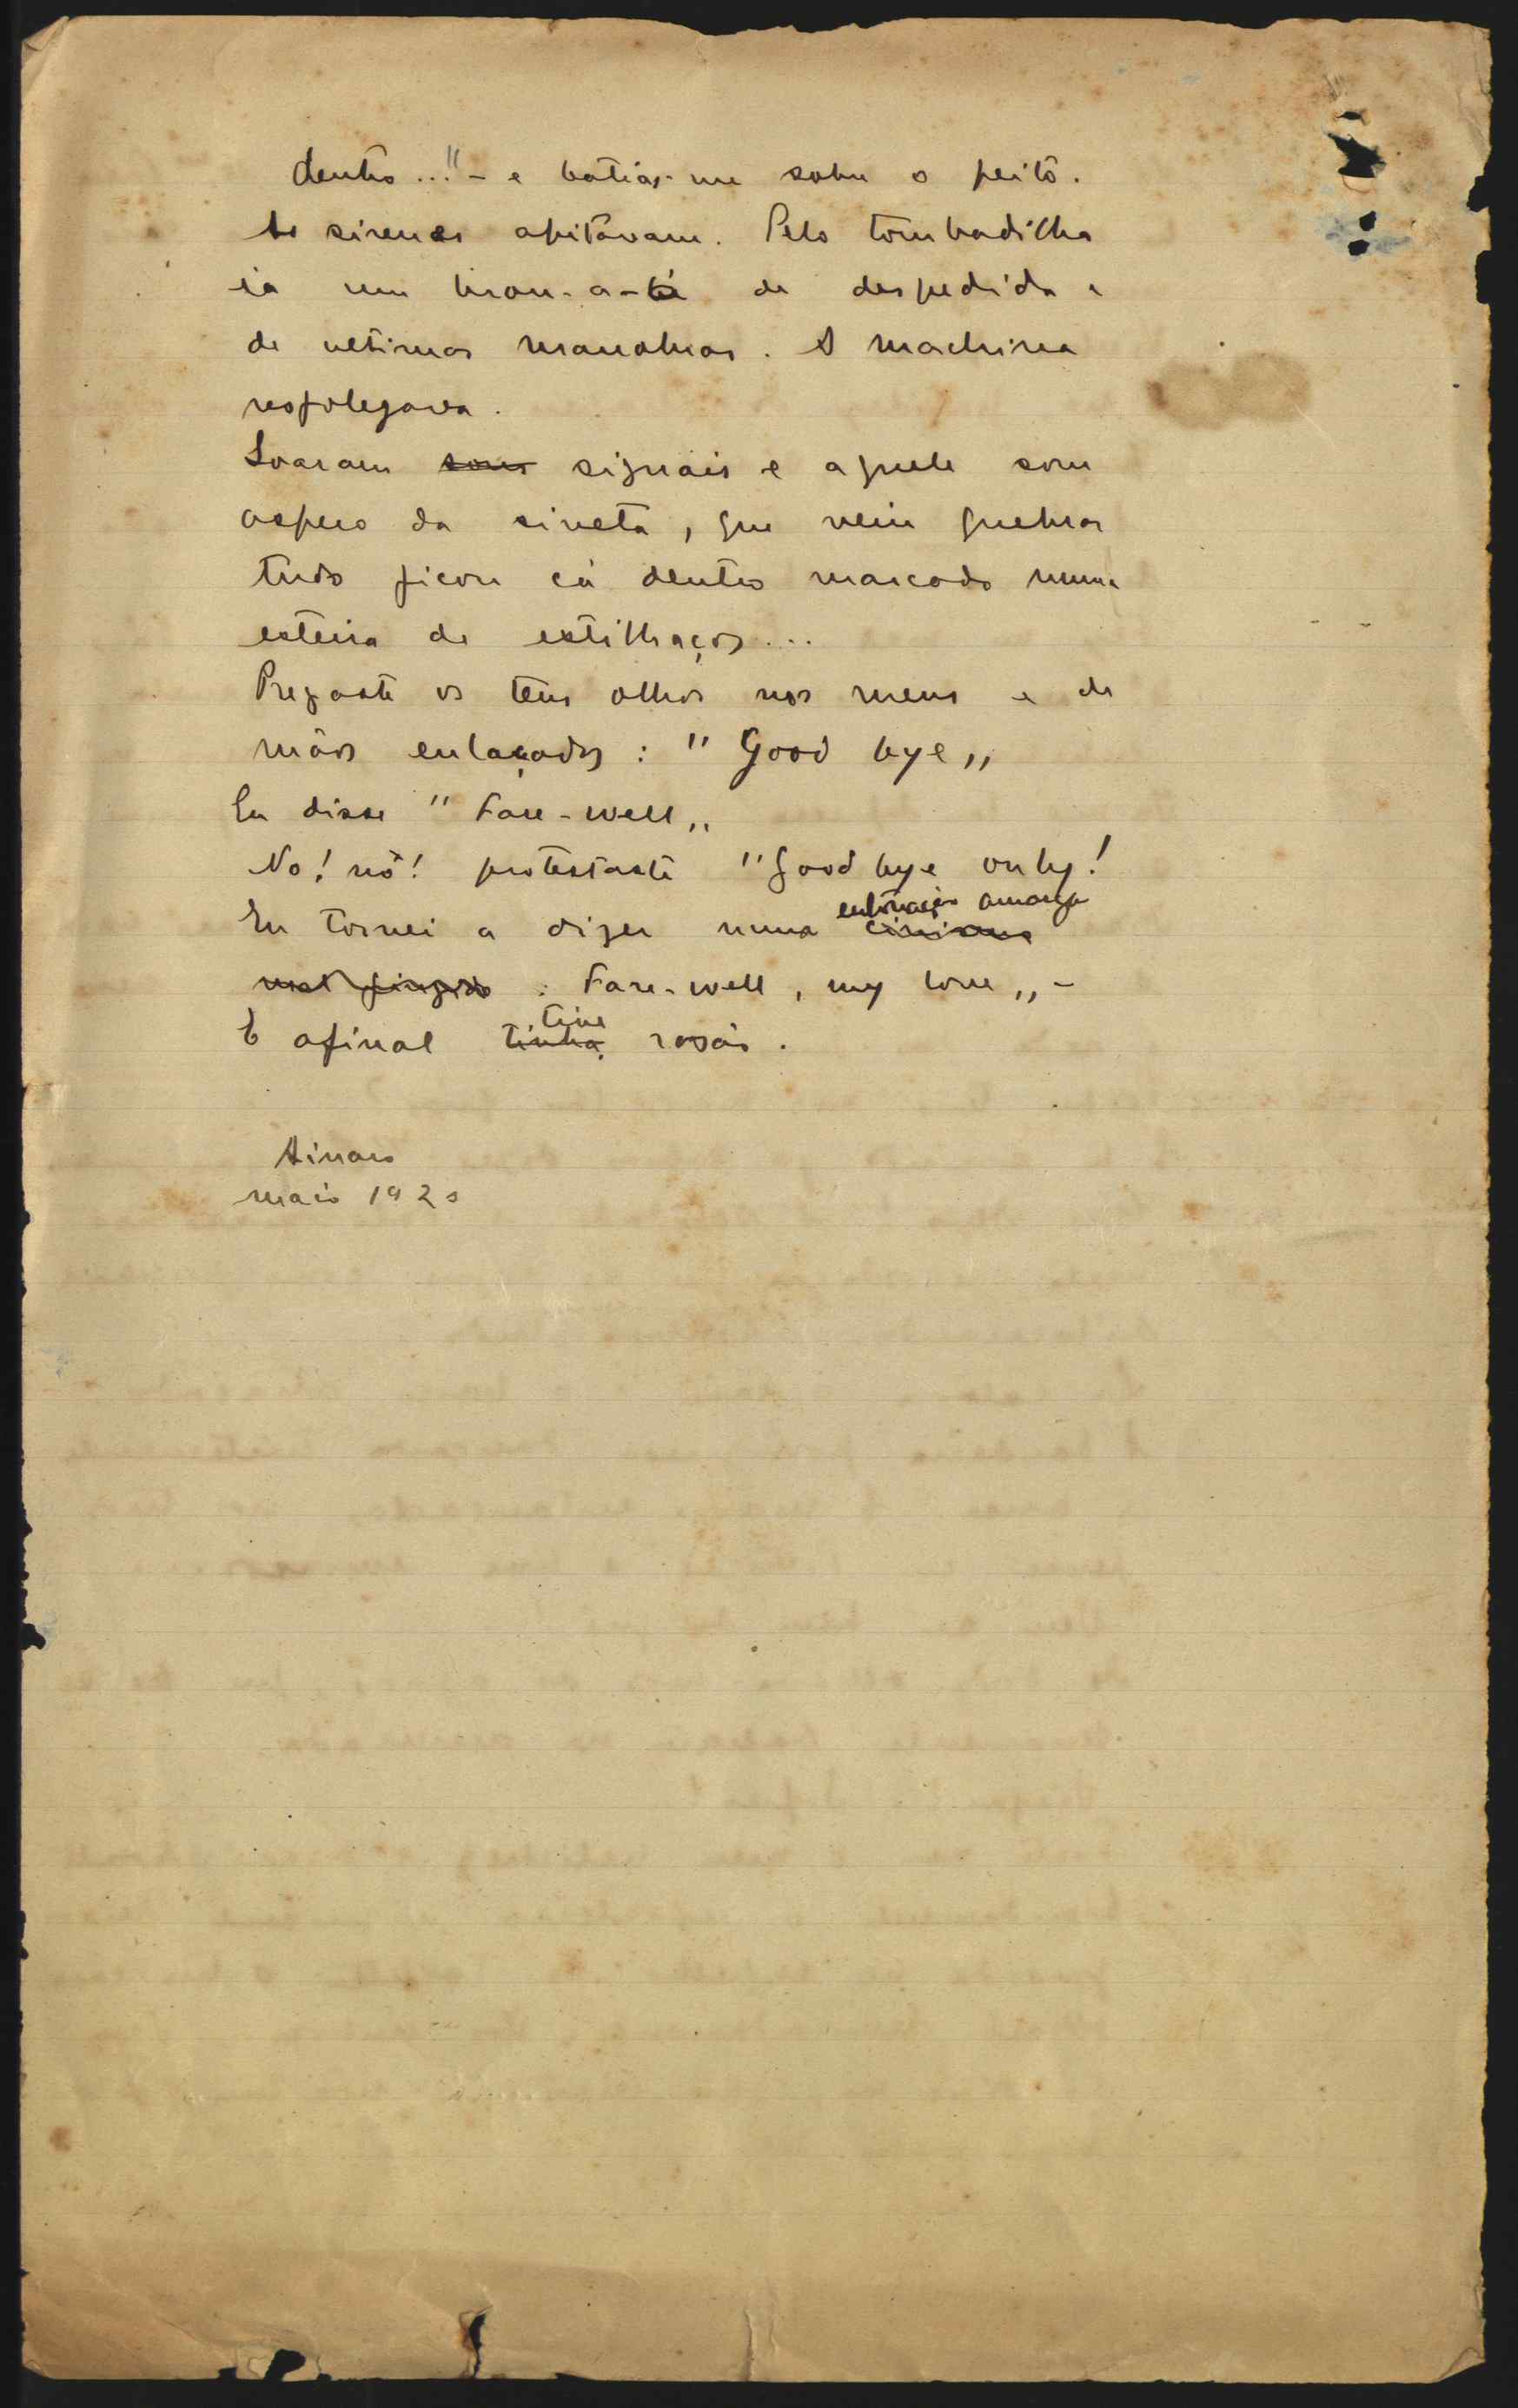 dentro..." - e batias-me sobre o peito.
As sirenes apitavam. Pelo tombadilho
ia um bron-a-á de despedida e
de ultimas manobras. A machina
resfolegava.
Soaram sons signais e aquele som
aspero da sineta, que veiu quebrar
tudo ficou cá dentro marcado numa
esteira de estilhaços...
Pregaste os teus olhos nos meus e de
mãos enlaçados: "Good bye„
Eu disse "Fare-well„
No! nô! protestaste "Good bye only!
entonação amarga
Eu tornei a dizer numa cinismo
mal fingido : Fare-well, my love„ -
tive
E afinal tinha razão.
maio 1920